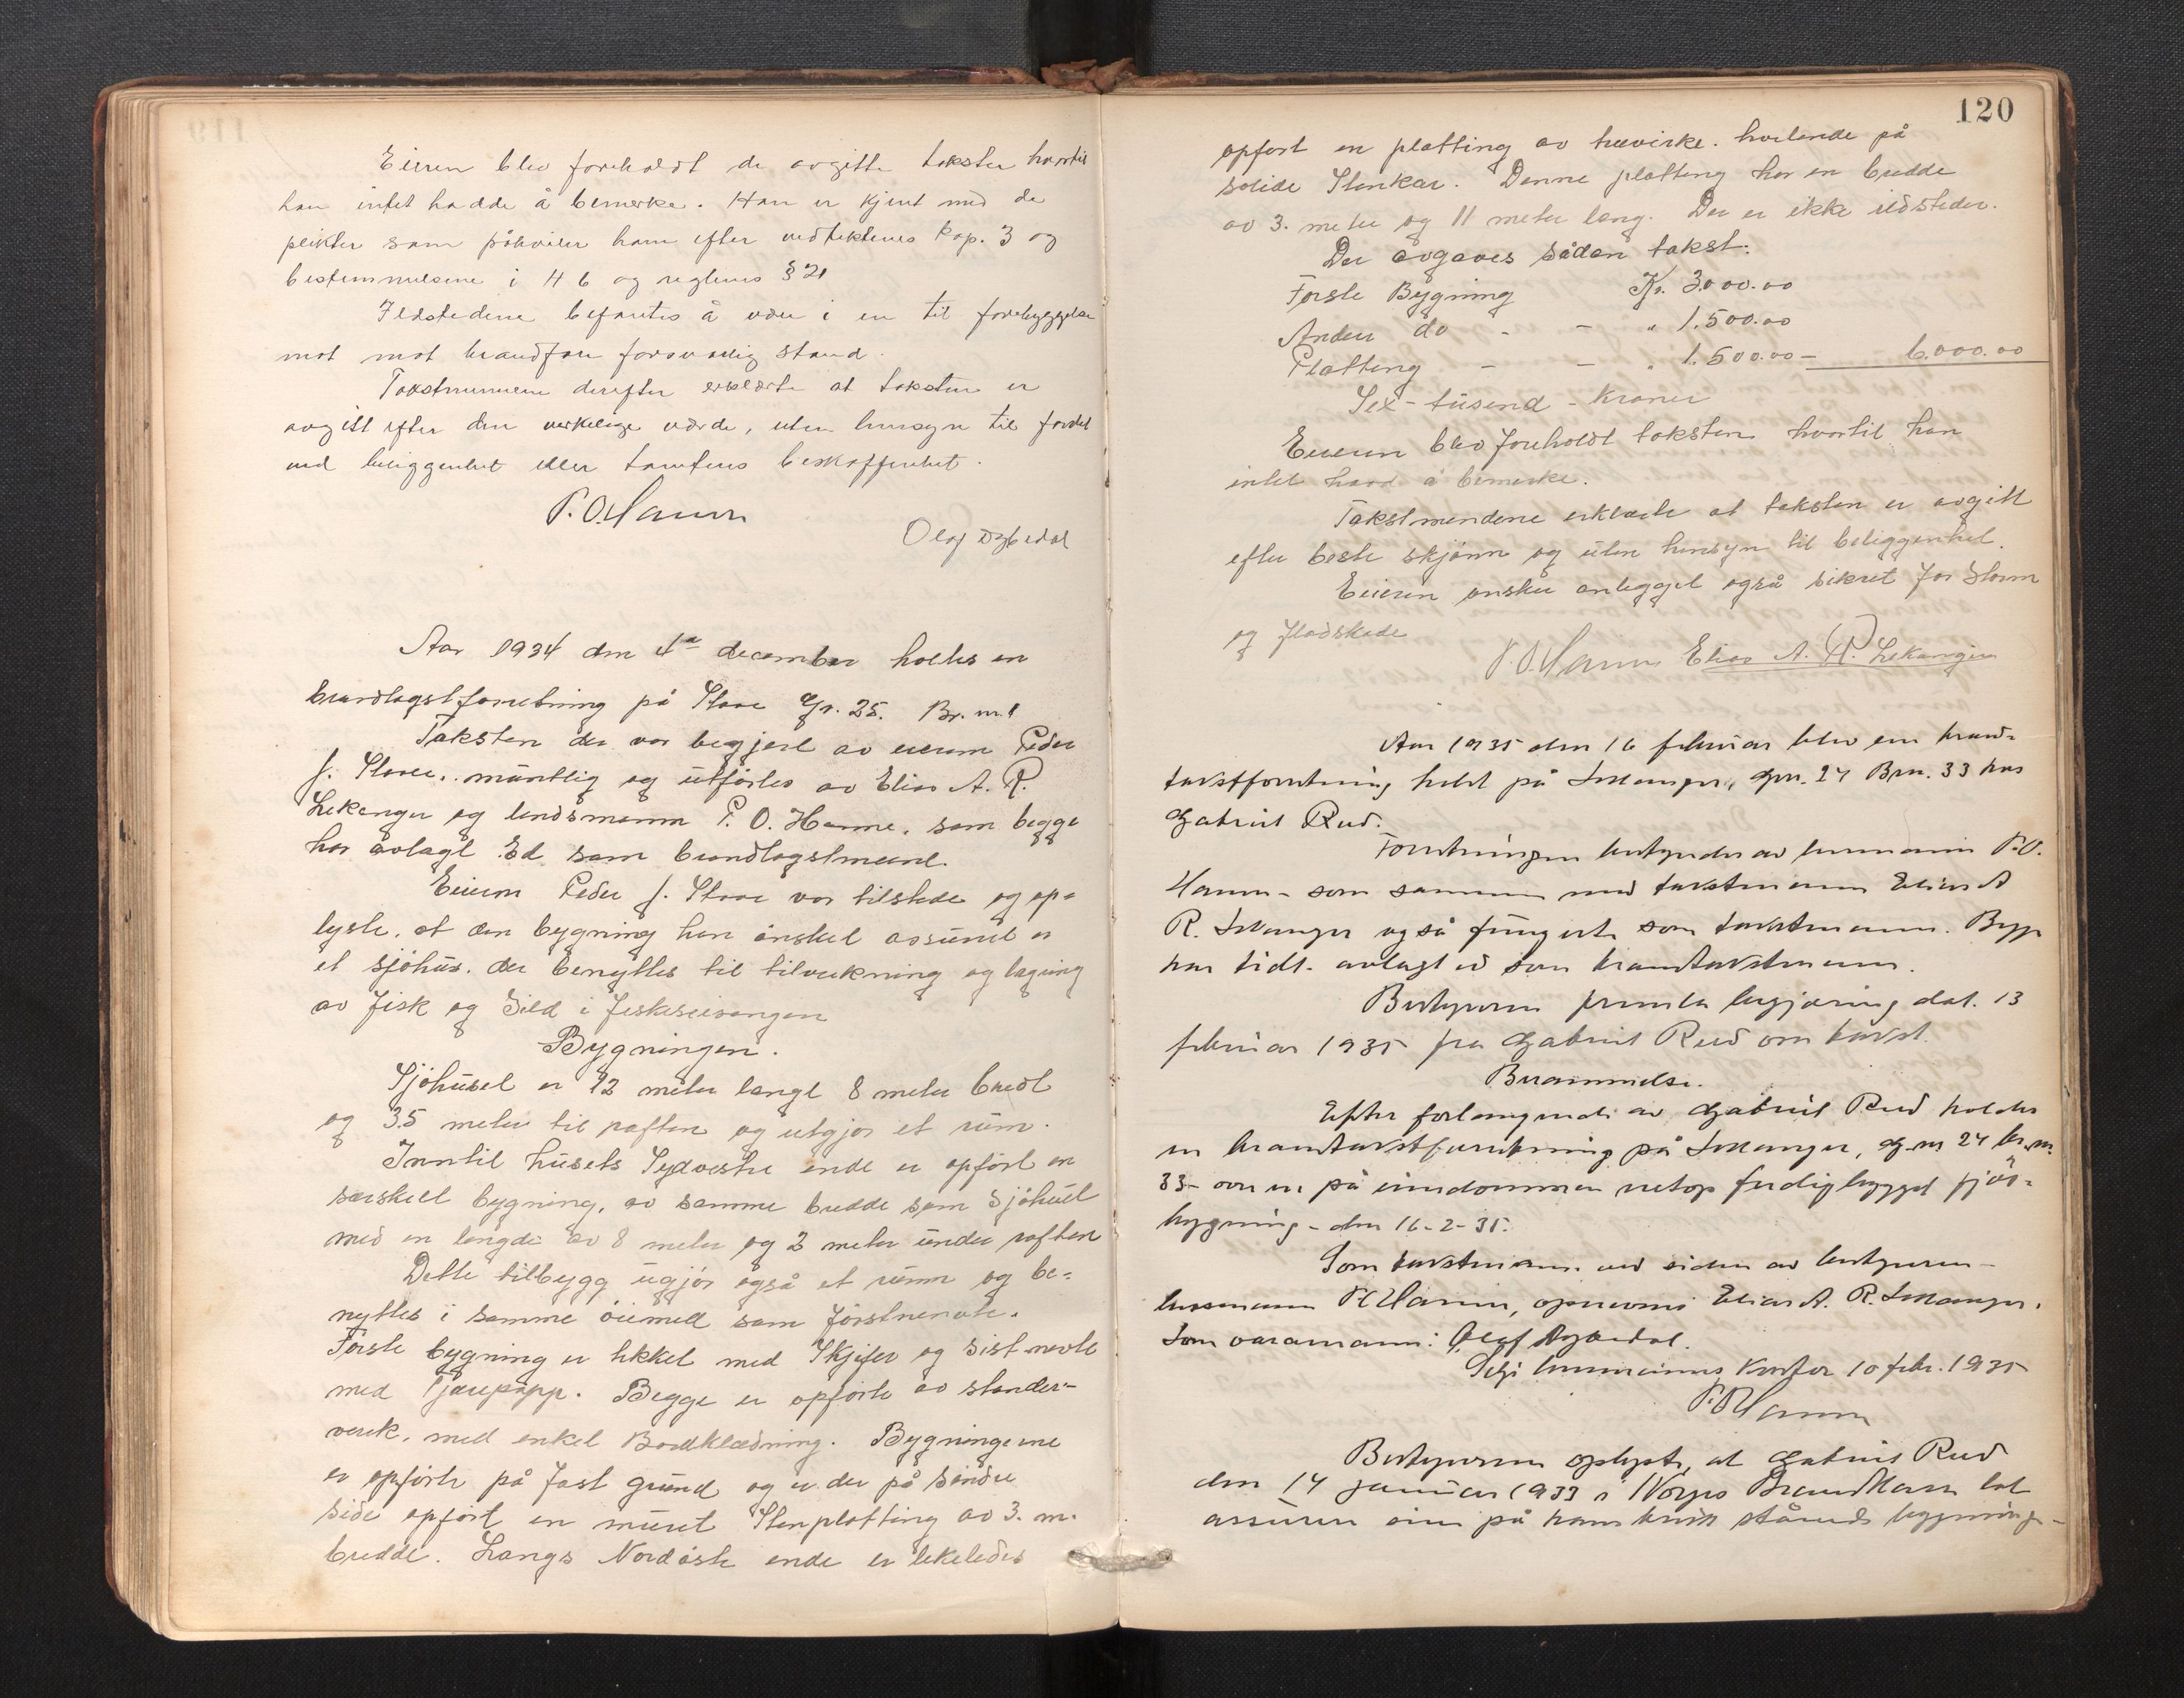 Eieren blev foreholdt de avgitte takster hvortil
han intet hadde å bemerke. Han er kjent med de
plikter som påhviler ham efter vedtektenes kap. 3 og
bestemmelsene i 46 og reglenes § 21
Ildstedene befantes å være i en til forebyggelse
mot mot brandfare forsvarlig stand.
Takstmennene derefter erklærte at taksten er
avgitt efter den verkelige værde, uten hensyn til fordel
ved beliggenhet eller tomtens beskaffenhet.
P. O. Hamre
Olaf Dybedal
Aar 1934 den 4de december holtes en
brandtagstforretning på Stave Gr. 25. Br. nr. 1
Taksten der var begjert av eieren Peder
J. Stave, müntlig og ütförtes av Elias A. R.
Lekanger og lendsmann P. O. Hamre, som begge
har avlagt Ed som brandtagstmend.
Eieren Peder J. Stave var tilstede og op-
lyste, at den bygning han önsket assüret er
et sjöhüs, der benyttes til tilvirkning og lagring
av fisk og Sild i fiskeseisongen
Bygningen.
Sjöhüset er 12 meter langt 8 meter bredt
og 3.5 meter til raften og utgjör et rüm.
Inntil hüsets Sydvestre ende er opfört en
særskelt bygning, av samme bredde som Sjöhüset
med en lengde av 8 meter og 3 meter ünder raften
Dette tilbygg ügjör også et rümm og be-
nyttes i samme öiemed som förstnevnte.
Förste bygning er tekket med Skjifer og sist nevte
med Tjærepapp. Begge er opförte av stender-
verk, med enkel Bordklædning. Bygningerne
er opförte på fast gründ og er der på Söndre
side opfört en müret Stenplatting av 3. m.
bredde. Langs Nordöste ende er likeledes
120
opfört en platting av trævirke. hvilende på
solide Stenkar. Denne platting har en bredde
av 3. meter og 11 meter lang. Der er ikke ildsteder.
Der avgaves sådan takst:
Förste Bygning Kr. 3000.00
Anden do - - " 1.500.00
Platting - - " 1.500.00 - 6.000.00
Sex-tüsend-Kroner
Eieren blev foreholdt taksten hvortil han
intet havd å bemerke.
Takstmendene erklærte at taksten er avgitt
efter beste skjönn og üten hensyn til beliggenhet.
Eieren önsker anlegget også sikret for Storm
og flodskade
P. O. Hamre Elias A. R. Lekanger
Aar 1935 den 16 februar blev en brand-
takstforretning holdt på Lekanger, gnr. 24 Brn. 33 hos
Gabriel Rud.
Forretningen bestyredes av lensmann P. O.
Hamre - som sammen med takstmann Elias A
R. Lekanger også füngerte som takstmenn. Begge
har tidl. avlagt ed som brandtakstmenn.
Bestyreren fremla begjæring dat. 13
februar 1935 fra Gabriel Rud om takst.
Berammelse.
Efter forlangende av Gabriel Rud holdes
en brandtakstforretning på Lekanger, g. nr 24 br. nr.
33 - over en på eiendommen netop ferdig bygget fjös-
bygning - den 16-2-35.
Som takstmenn ved siden av bestyreren -
lensmann P. O. Hamre, opnevnes Elias A. R. Lekanger.
Som varamann: Olaf Dybedal.
Selje lensmanns kontor 10 febr. 1935
P. O. Hamre
Bestyreren oplyste, at Gabriel Rud
den 14 januar 1933 i Norges Brandkasse lot
assürere sine på hans brük stående bygninger -